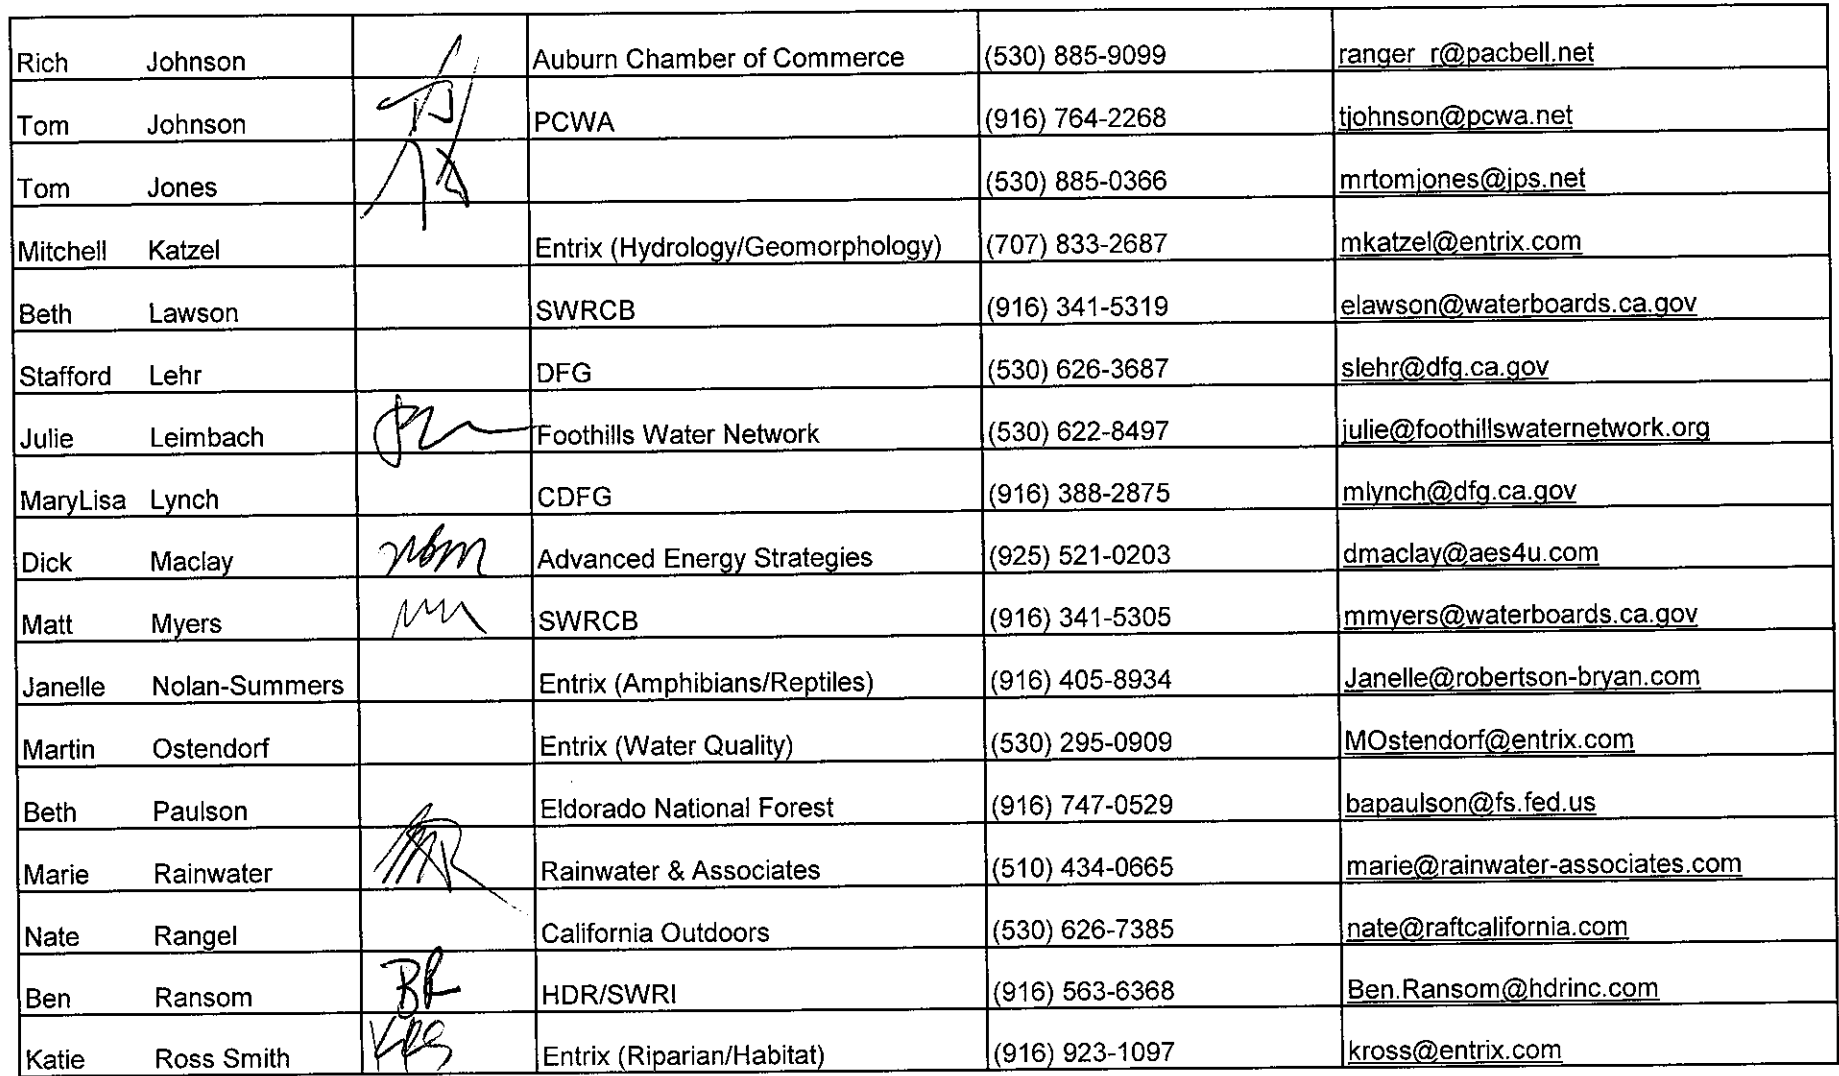 Rich Johnson Auburn Chamber of Commerce (530) 885-9099 ranger_r@pacbell.net
Tom Johnson TJ PCWA (916) 764-2268 tjohnson@pcwa.net
Tom Jones (530) 885-0366 mrtomjones@jps.net
Mitchell Katzel Entrix (Hydrology/Geomorphology) (707) 833-2687 mkatzel@entrix.com
Beth Lawson SWRCB (916) 341-5319 elawson@waterboards.ca.gov
Stafford Lehr DFG (530) 626-3687 slehr@dfg.ca.gov
Julie Leimbach Foothills Water Network (530) 622-8497 julie@foothillswaternetwork.org
MaryLisa Lynch CDFG (916) 388-2875 mlynch@dfg.ca.gov
Dick Maclay Advanced Energy Strategies (925) 521-0203 dmaclay@aes4u.com
Matt Myers SWRCB (916) 341-5305 mmyers@waterboards.ca.gov
Janelle Nolan-Summers Entrix (Amphibians/Reptiles) (916) 405-8934 Janelle@robertson-bryan.com
Martin Ostendorf Entrix (Water Quality) (530) 295-0909 MOstendorf@entrix.com
Beth Paulson Eldorado National Forest (916) 747-0529 bapaulson@fs.fed.us
Marie Rainwater Rainwater & Associates (510) 434-0665 marie@rainwater-associates.com
Nate Rangel California Outdoors (530) 626-7385 nate@raftcalifornia.com
Ben Ransom BR HDR/SWRI (916) 563-6368 Ben.Ransom@hdrinc.com
Katie Ross Smith KRS Entrix (Riparian/Habitat) (916) 923-1097 kross@entrix.com